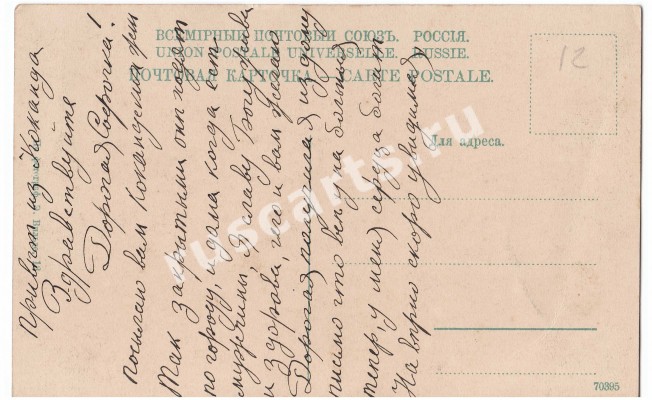 ВСЕМІРНЫЙ ПОЧТОВЫЙ СОЮЗЪ. РОССІЯ.
UNION POSTALE UNIVERSELLE. RUSSIE.
ПОЧТОВАЯ КАРТОЧКА. — CARTE POSTALE.
12
Для адреса.
привѣт из Коканда
Здравствуйте
Дорогая Сорочка!
посилаю вам Кокандския
Так закрытыми они ходят
по городу, идома когда ест
мужчини. Я славу Богу жива
и здорова, чего и вам желаю
Дорогая
писмо что вы были больны
тепер, у меня серца болит
На верно скоро увидимся
70395
ruscarts.ru